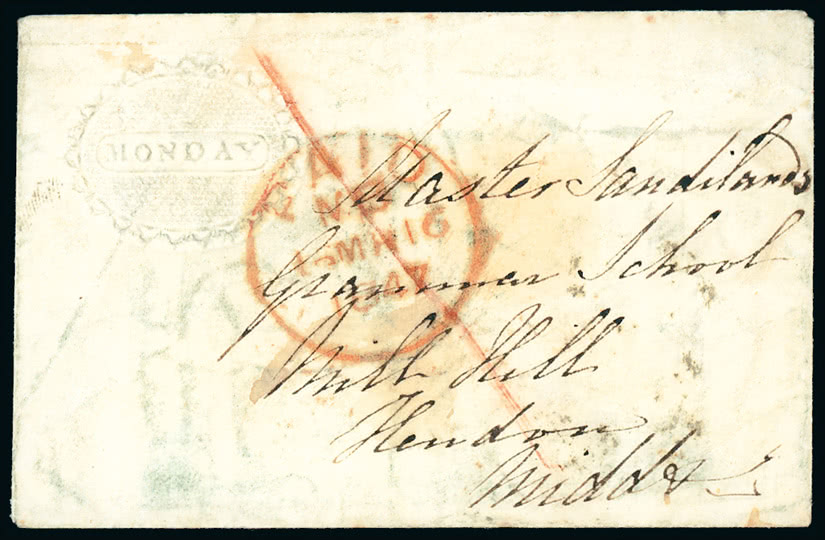 MONDAY
PAID
15MR16
1847
Master Sandilands
Grammar School
Mill Hill
Hendon
Middx